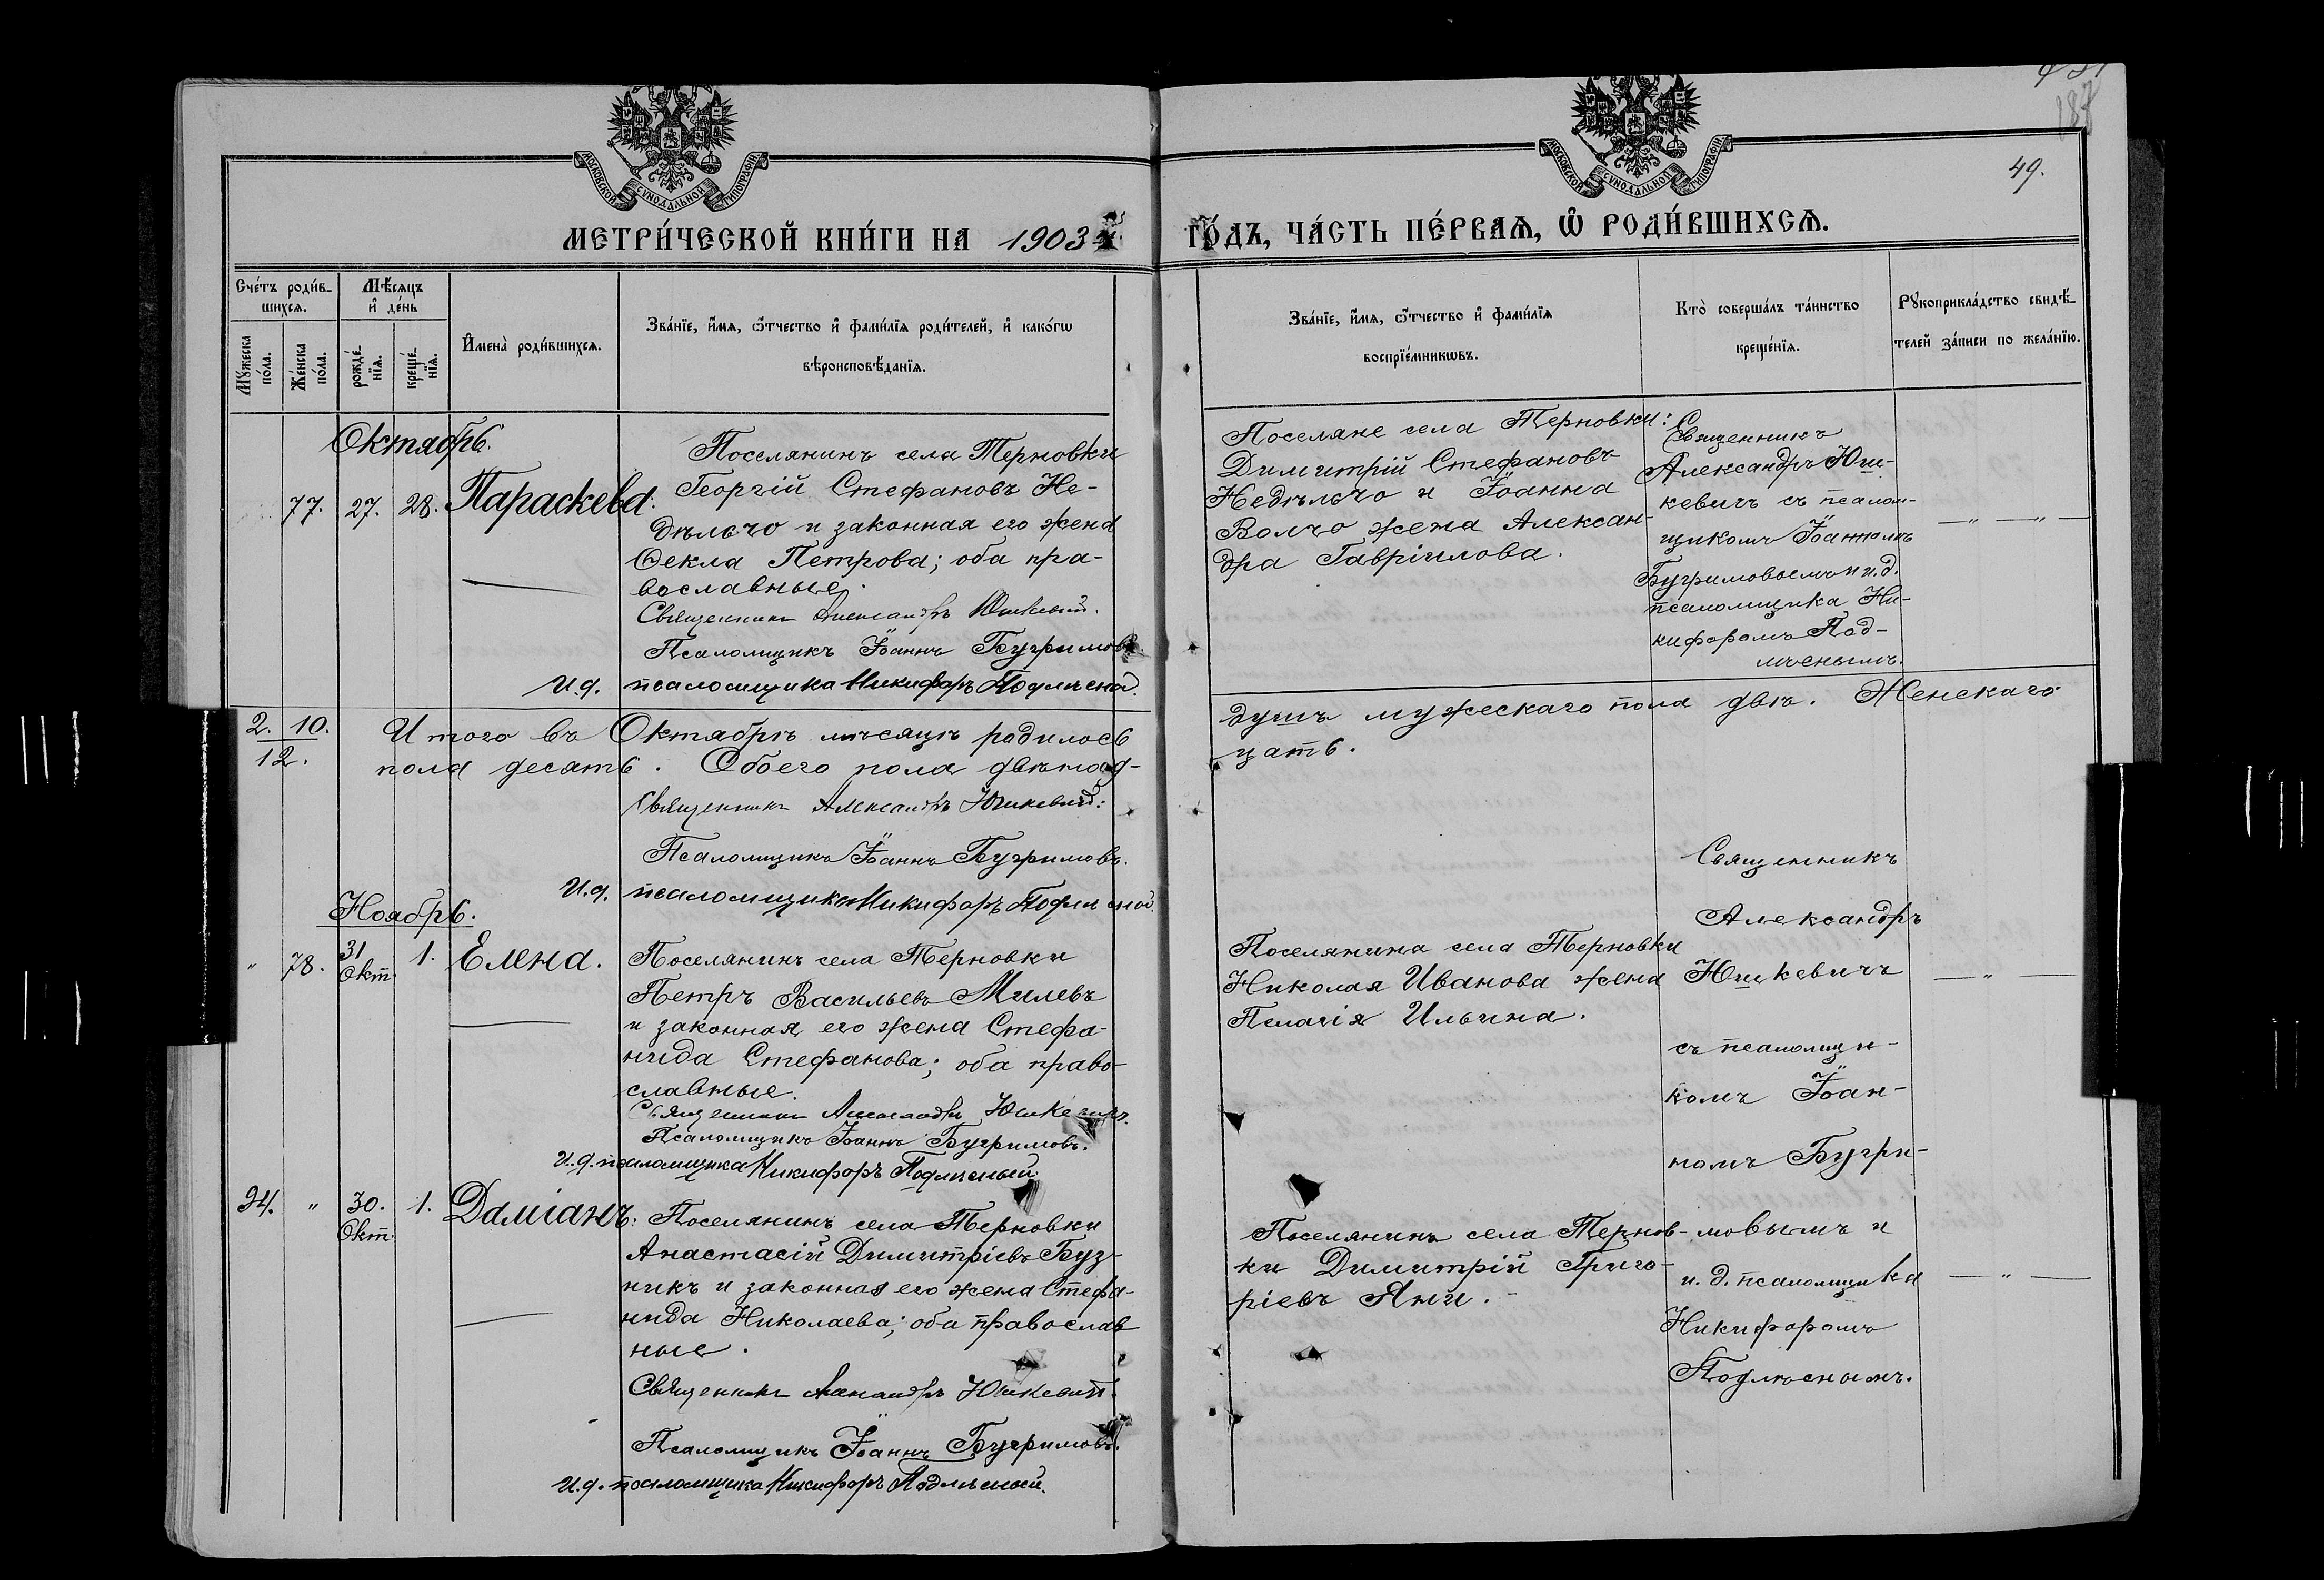 431
187
МОСКОВСКОЙ СѴНОДАЛЬНОЙ ТИПОГРАФІИ
МОСКОВСКОЙ СѴНОДАЛЬНОЙ ТИПОГРАФІИ
49.
МЕТРИ́ЧЕСКОЙ КНИ́ГИ НА 1903
ГО́ДЪ, ЧА́СТЬ ПЕ́РВАѦ, Ѡ҆ РОДИ́ВШИХСѦ.
Сче́тъ роди́в-
шихсѧ.
Мѣ́сѧцъ
и҆ де́нь
Мꙋ́жеска
по́ла.
Же́нска
по́ла.
рожде́-
нїѧ.
креще́-
нїѧ.
И҆мена̀ роди́вшихсѧ.
Зва́нїе, и҆́мѧ, ѻ҆́тчество и҆ фами́лїѧ роди́телей, и҆ како́гѡ
вѣроисповѣ́данїѧ.
Зва́нїе, и҆́мѧ, ѻ҆́тчество и҆ фами́лїѧ
воспрїе́мникѡвъ.
Кто̀ соверша́лъ та́инство
креще́нїѧ.
Рꙋкоприкла́дство свидѣ́-
телей за́писи по жела́нїю.
Октябрь.
77. 27. 28. Параскева:
Поселянинъ села Терновки
Георгій Стефановъ Не-
дѣльчо и законная его жена
Ѳекла Петрова; оба пра-
вославные.
Священникъ Александръ Юшкевичъ.
Псаломщикъ Іоаннъ Бугримовъ.
И.д. псаломщика Никифоръ Подлѣсной.
Поселяне села Терновки:
Димитрій Стефановъ
Недѣльчо и Іоанна
Волчо жена Алексан-
дра Гавріилова.
Священникъ
Александръ Юш-
кевичъ съ псалом-
щикомъ Іоанномъ
Бугримовымъ и и.д.
псаломщика Ни-
кифоромъ Под-
лѣснымъ.
— „ — „ —
2. 10.
12.
Итого въ Октябрѣ мѣсяцѣ родилось
душъ мужескаго пола двѣ. Женскаго
пола десять. Обоего пола двѣнад-
цать.
Священникъ Александръ Юшкевичъ:
Псаломщикъ Іоаннъ Бугримовъ.
И.д. псаломщика Никифоръ Подлѣсной.
Ноябрь.
„ 78. 31 Окт. 1. Елена.
Поселянинъ села Терновки
Петръ Васильевъ Милевъ
и законная его жена Стефа-
нида Стефанова; оба право-
славные.
Священникъ Александръ Юшкевичъ.
Псаломщикъ Іоаннъ Бугримовъ.
И.д. псаломщика Никифоръ Подлѣсный
Поселянина села Терновки
Николая Иванова жена
Пелагія Ильина.
Священникъ
Александръ
Юшкевичъ
съ псаломщи-
комъ Іоан-
номъ Бугри-
мовымъ и
и. д. псаломщика
Никифоромъ
Подлѣснымъ.
— „ —
94. „ 30. Окт. 1. Даміанъ:
Поселянинъ села Терновки
Анастасій Димитріевъ Буз-
никъ и законная его жена Стефа-
нида Николаева; оба православ
ные.
Священникъ Александръ Юшкевичъ.
Псаломщикъ Іоаннъ Бугримовъ.
И.д. псаломщика Никифоръ Подлѣсной.
Поселянинъ села Тернов-
ки Димитрій Григо-
ріевъ Яни.
— „ —